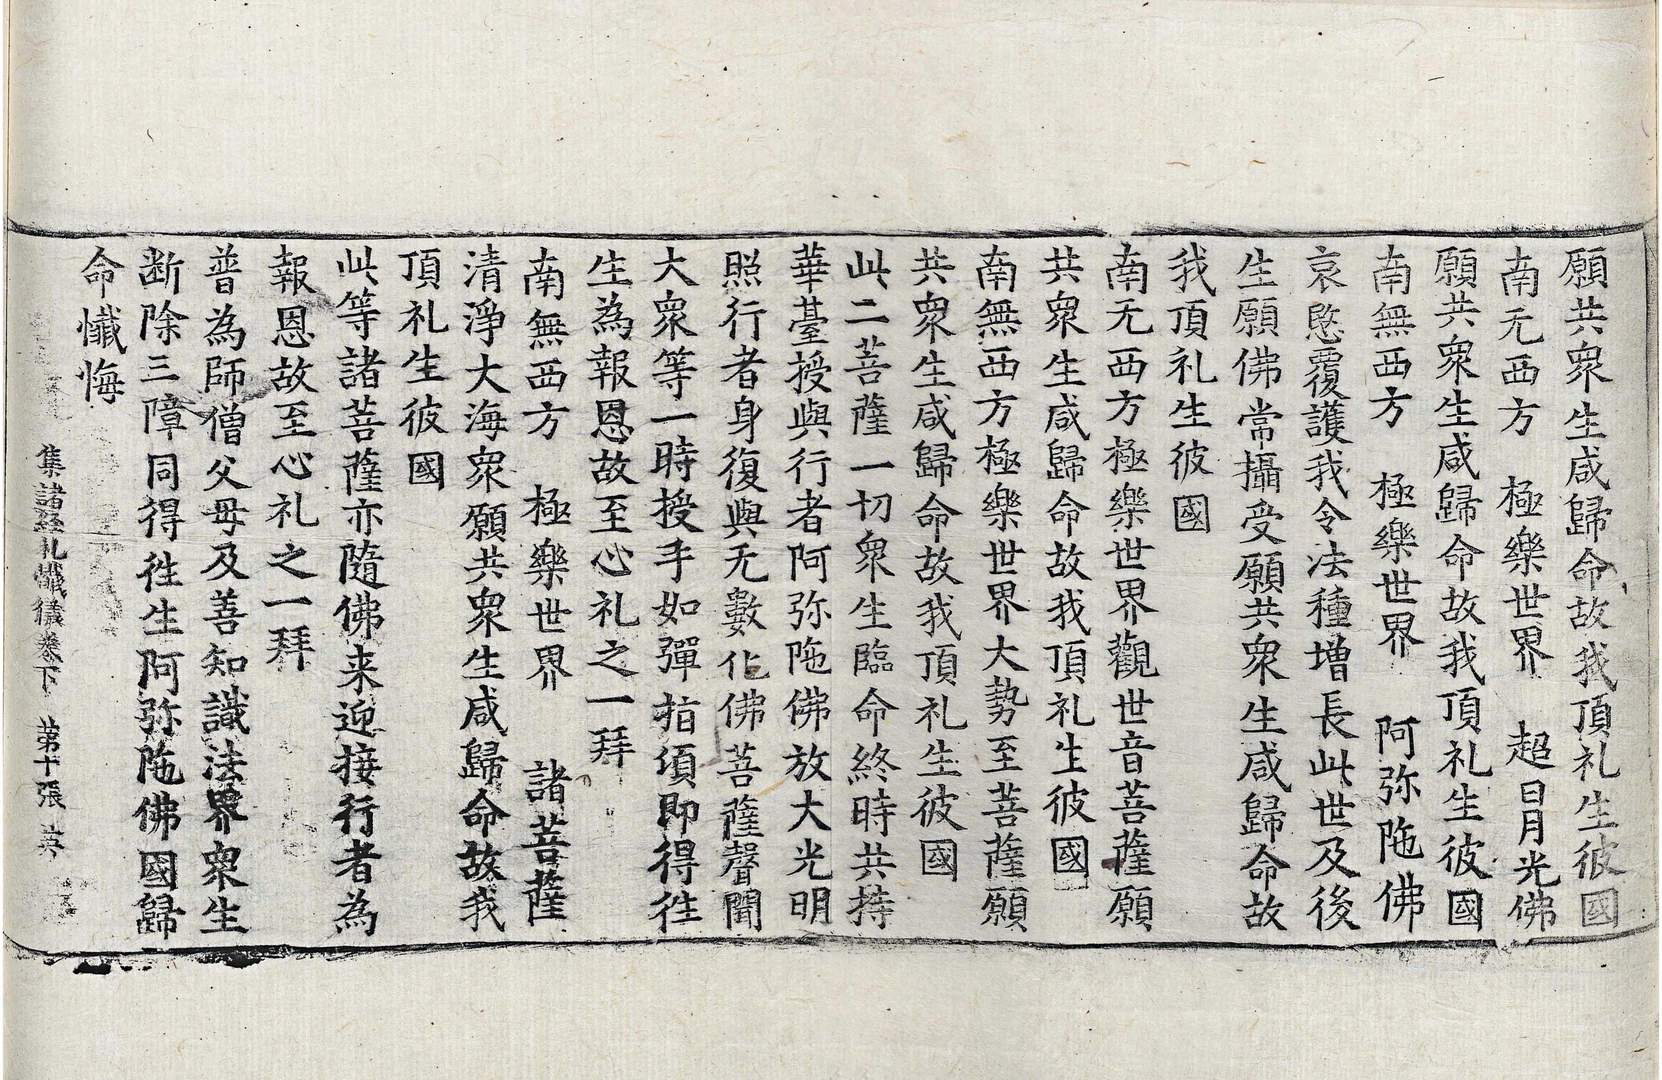 願共衆生咸歸命故我頂礼生彼國
南无西方　極樂世界　超日月光佛
願共衆生咸歸命故我頂礼生彼國
南無西方　極樂世界　阿弥陁佛
哀愍覆護我令法種增長此世及後
生願佛常攝受願共衆生咸歸命故
我頂礼生彼國
南无西方極樂世界觀世音菩薩願
共衆生咸歸命故我頂礼生彼國
南無西方極樂世界大勢至菩薩願
共衆生咸歸命故我頂礼生彼國
此二菩薩一切衆生臨命終時共持
華臺授與行者阿弥陁佛放大光明
照行者身復與无數化佛菩薩聲聞
大衆等一時授手如彈指頃即得徃
生為報恩故至心礼之一拜
南無西方　極樂世界　諸菩薩
清淨大海衆願共衆生咸歸命故我
頂礼生彼國
此等諸菩薩亦隨佛来迎接行者為
報恩故至心礼之一拜
普為師僧父毋及善知識法界衆生
断除三障同得徃生阿弥陁佛國歸
命懺悔
集諸經礼懺儀卷下　第十張　英